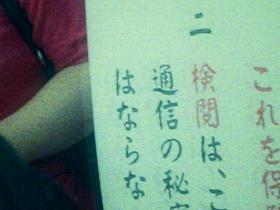 これを保
二
検閲は、こ
通信の秘
はならな